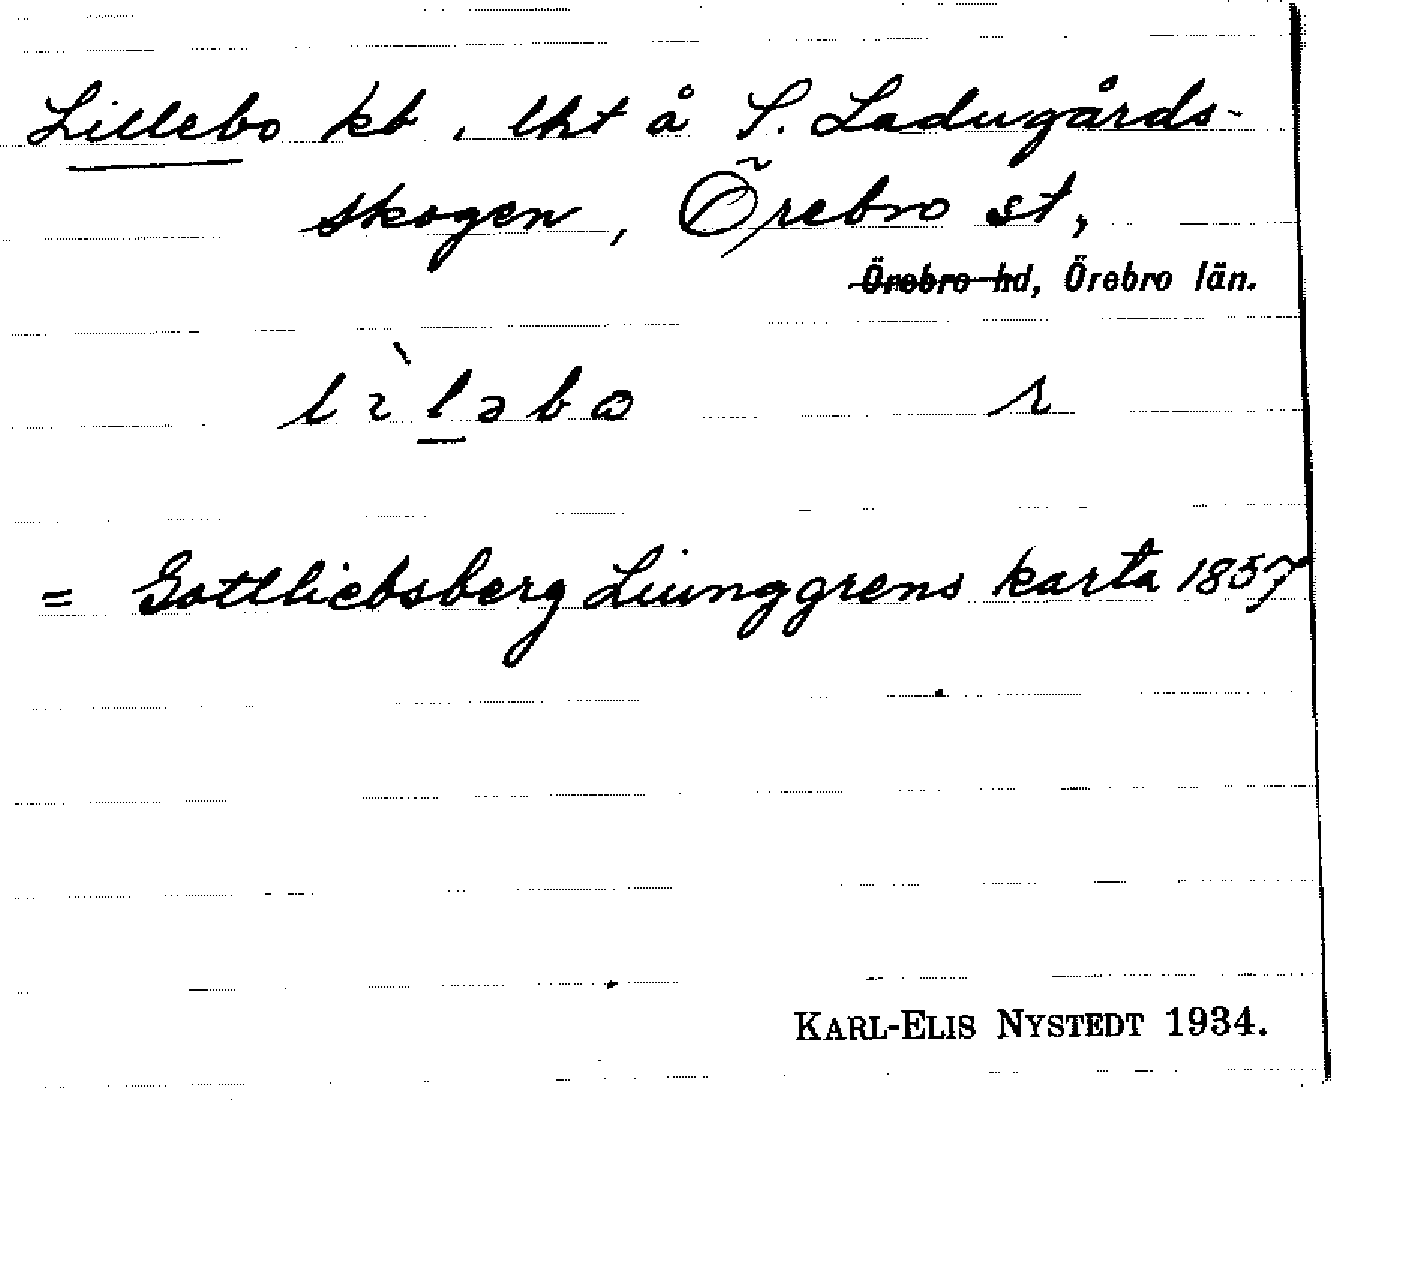 Lillebo kt, lht å S. Ladugårds-
skogen, Örebro st,
Örebro hd, Örebro län.
lìləbo r
= Gottliebsberg Liunggrens karta 1857
KARL-ELIS NYSTEDT 1934.